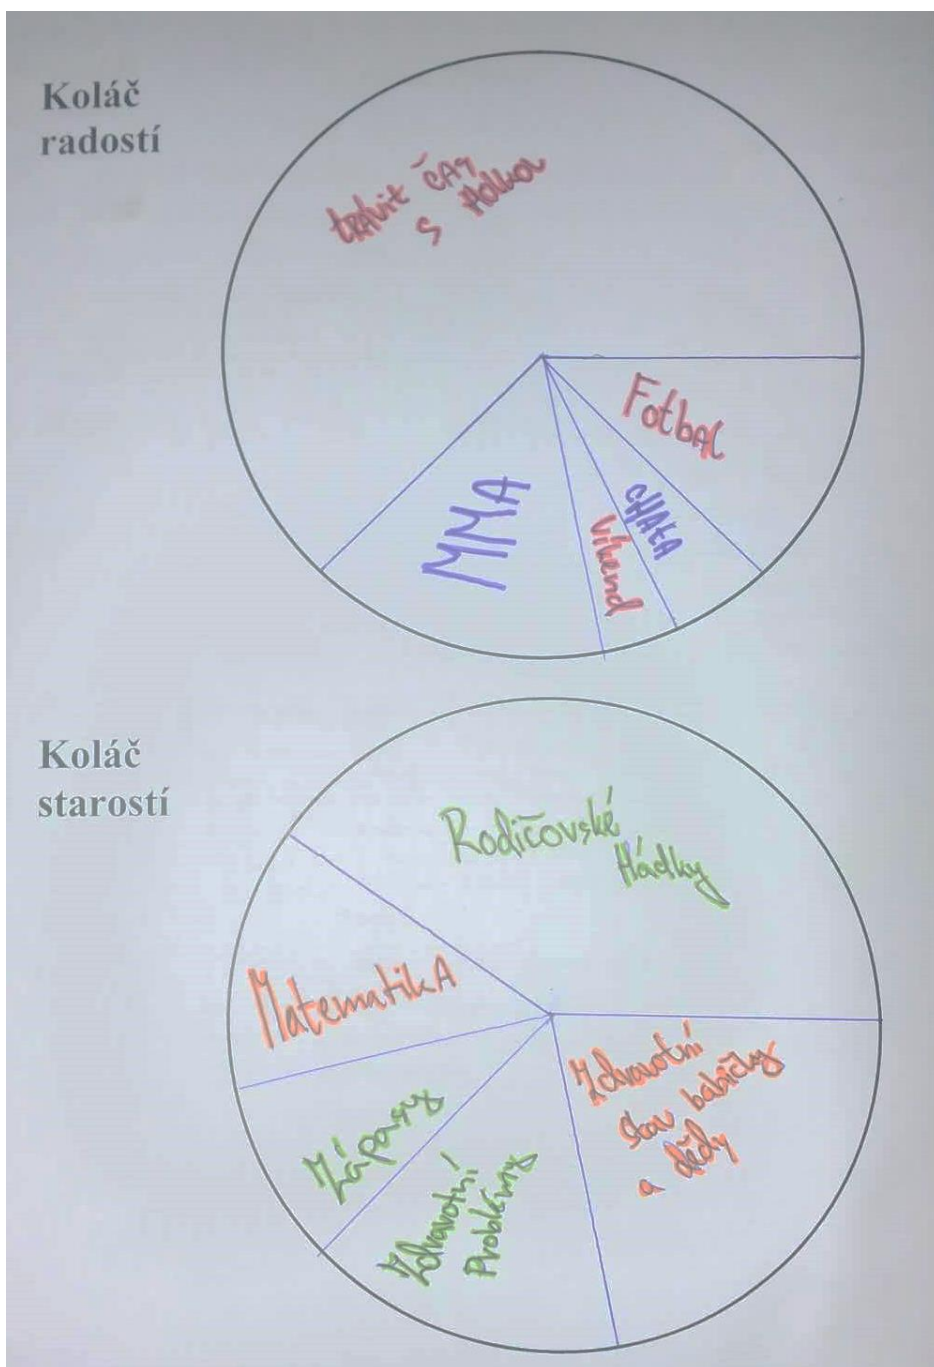 Koláč
radostí
trávit čAs
s Holkou
Fotbal
CHAtA
Víkend
MMA
Koláč
starostí
Rodičovské
Hádky
MatematikA
Zápasy
Zdravotní
Problémy
Zdravotní
stav babičky
a dědy